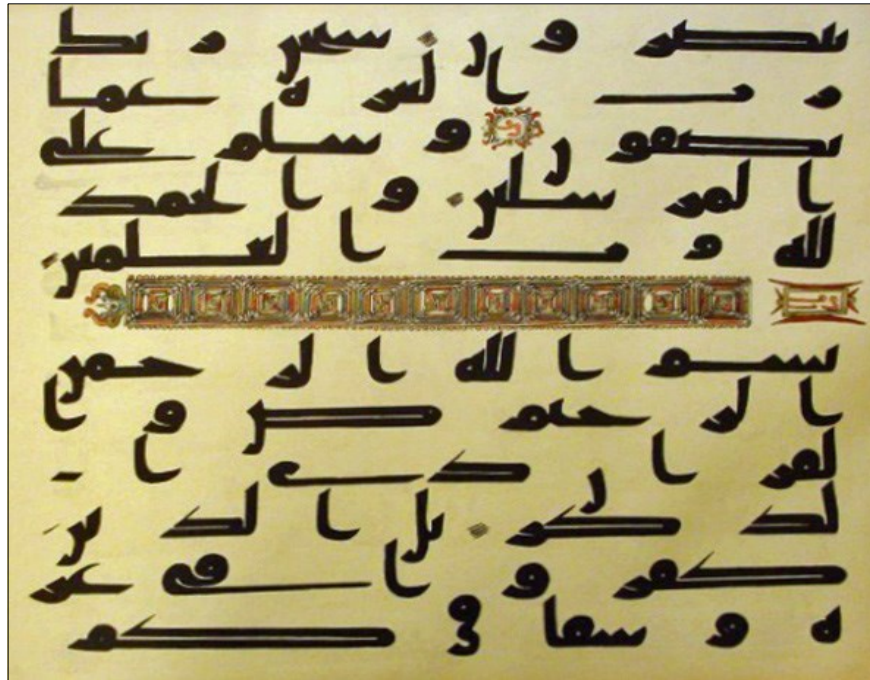 يبصرون سبحن ربك
رب العزة عما
يصفون وسلم على
المرسلين والحمد
لله رب العلمين
بسم الله الرحمن
الرحيم ص وا
لقران ذي ا
لذكر بل الذين
كفروا في عز
ة وشقاق كم